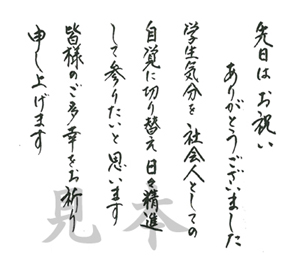 先日はお祝い
ありがとうございました
学生気分を社会人としての
自覚に切り替え日々精進
して参りたいと思います
皆様のご多幸をお祈り
申し上げます
見本